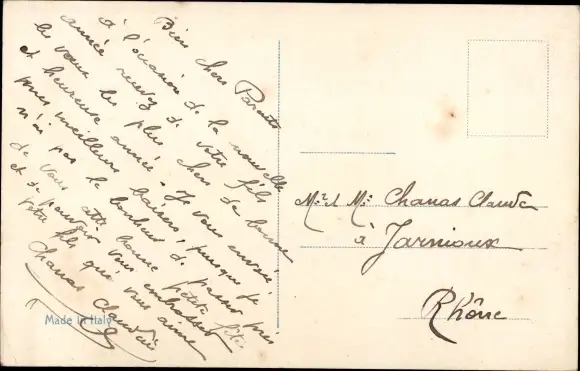 Bien chers Parents
à l'occasion de la nouvelle
année recevez de votre fils
les vœux les plus chers de bonne
et heureuse année. Je vous envoie
mes meilleurs baisers, puisque je
n'ai pas le bonheur de passer près
de vous cette bonne petite fête
et de pouvoir vous embrasser
votre fils que vous aime
Chanas Claudius
Made in Italy
Mr & Me Chanas Claude
à Jarnioux
Rhône